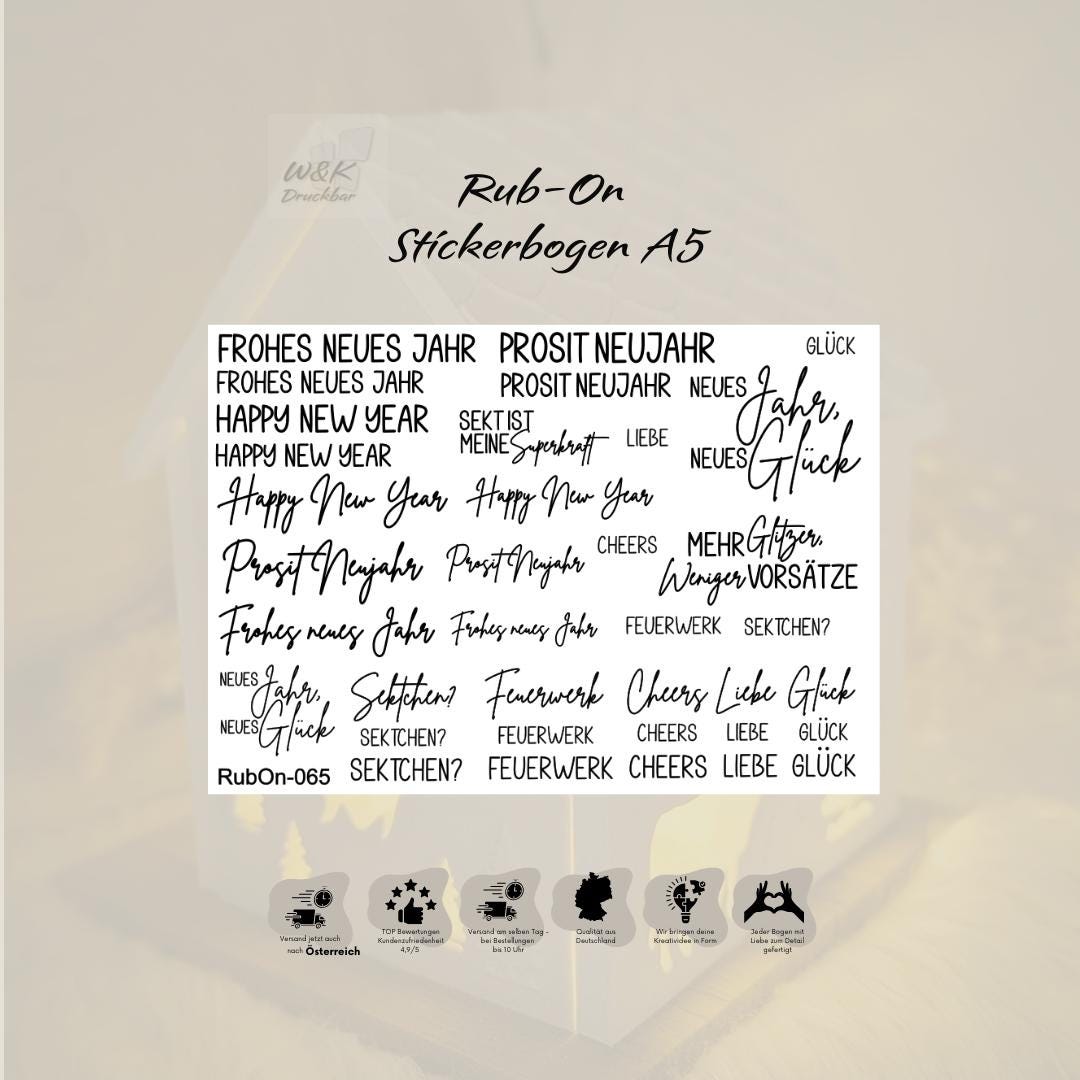 W&K
Druckbar
Rub-On
Stickerbogen A5
FROHES NEUES JAHR
PROSIT NEUJAHR
GLÜCK
FROHES NEUES JAHR
PROSIT NEUJAHR
NEUES Jahr,
NEUES Glück
HAPPY NEW YEAR
SEKT IST
MEINE Superkraft
LIEBE
HAPPY NEW YEAR
Happy New Year
Happy New Year
Prosit Neujahr
Prosit Neujahr
CHEERS
MEHR Glitzer,
Weniger VORSÄTZE
Frohes neues Jahr
Frohes neues Jahr
FEUERWERK
SEKTCHEN?
NEUES Jahr,
NEUES Glück
Sektchen?
Feuerwerk
Cheers
Liebe
Glück
SEKTCHEN?
FEUERWERK
CHEERS
LIEBE
GLÜCK
RubOn-065
SEKTCHEN?
FEUERWERK
CHEERS
LIEBE
GLÜCK
Versand jetzt auch
nach Österreich
TOP Bewertungen
Kundenzufriedenheit
4,9/5
Versand am selben Tag -
bei Bestellungen
bis 10 Uhr
Qualität aus
Deutschland
Wir bringen deine
Kreatividee in Form
Jeder Bogen mit
Liebe zum Detail
gefertigt